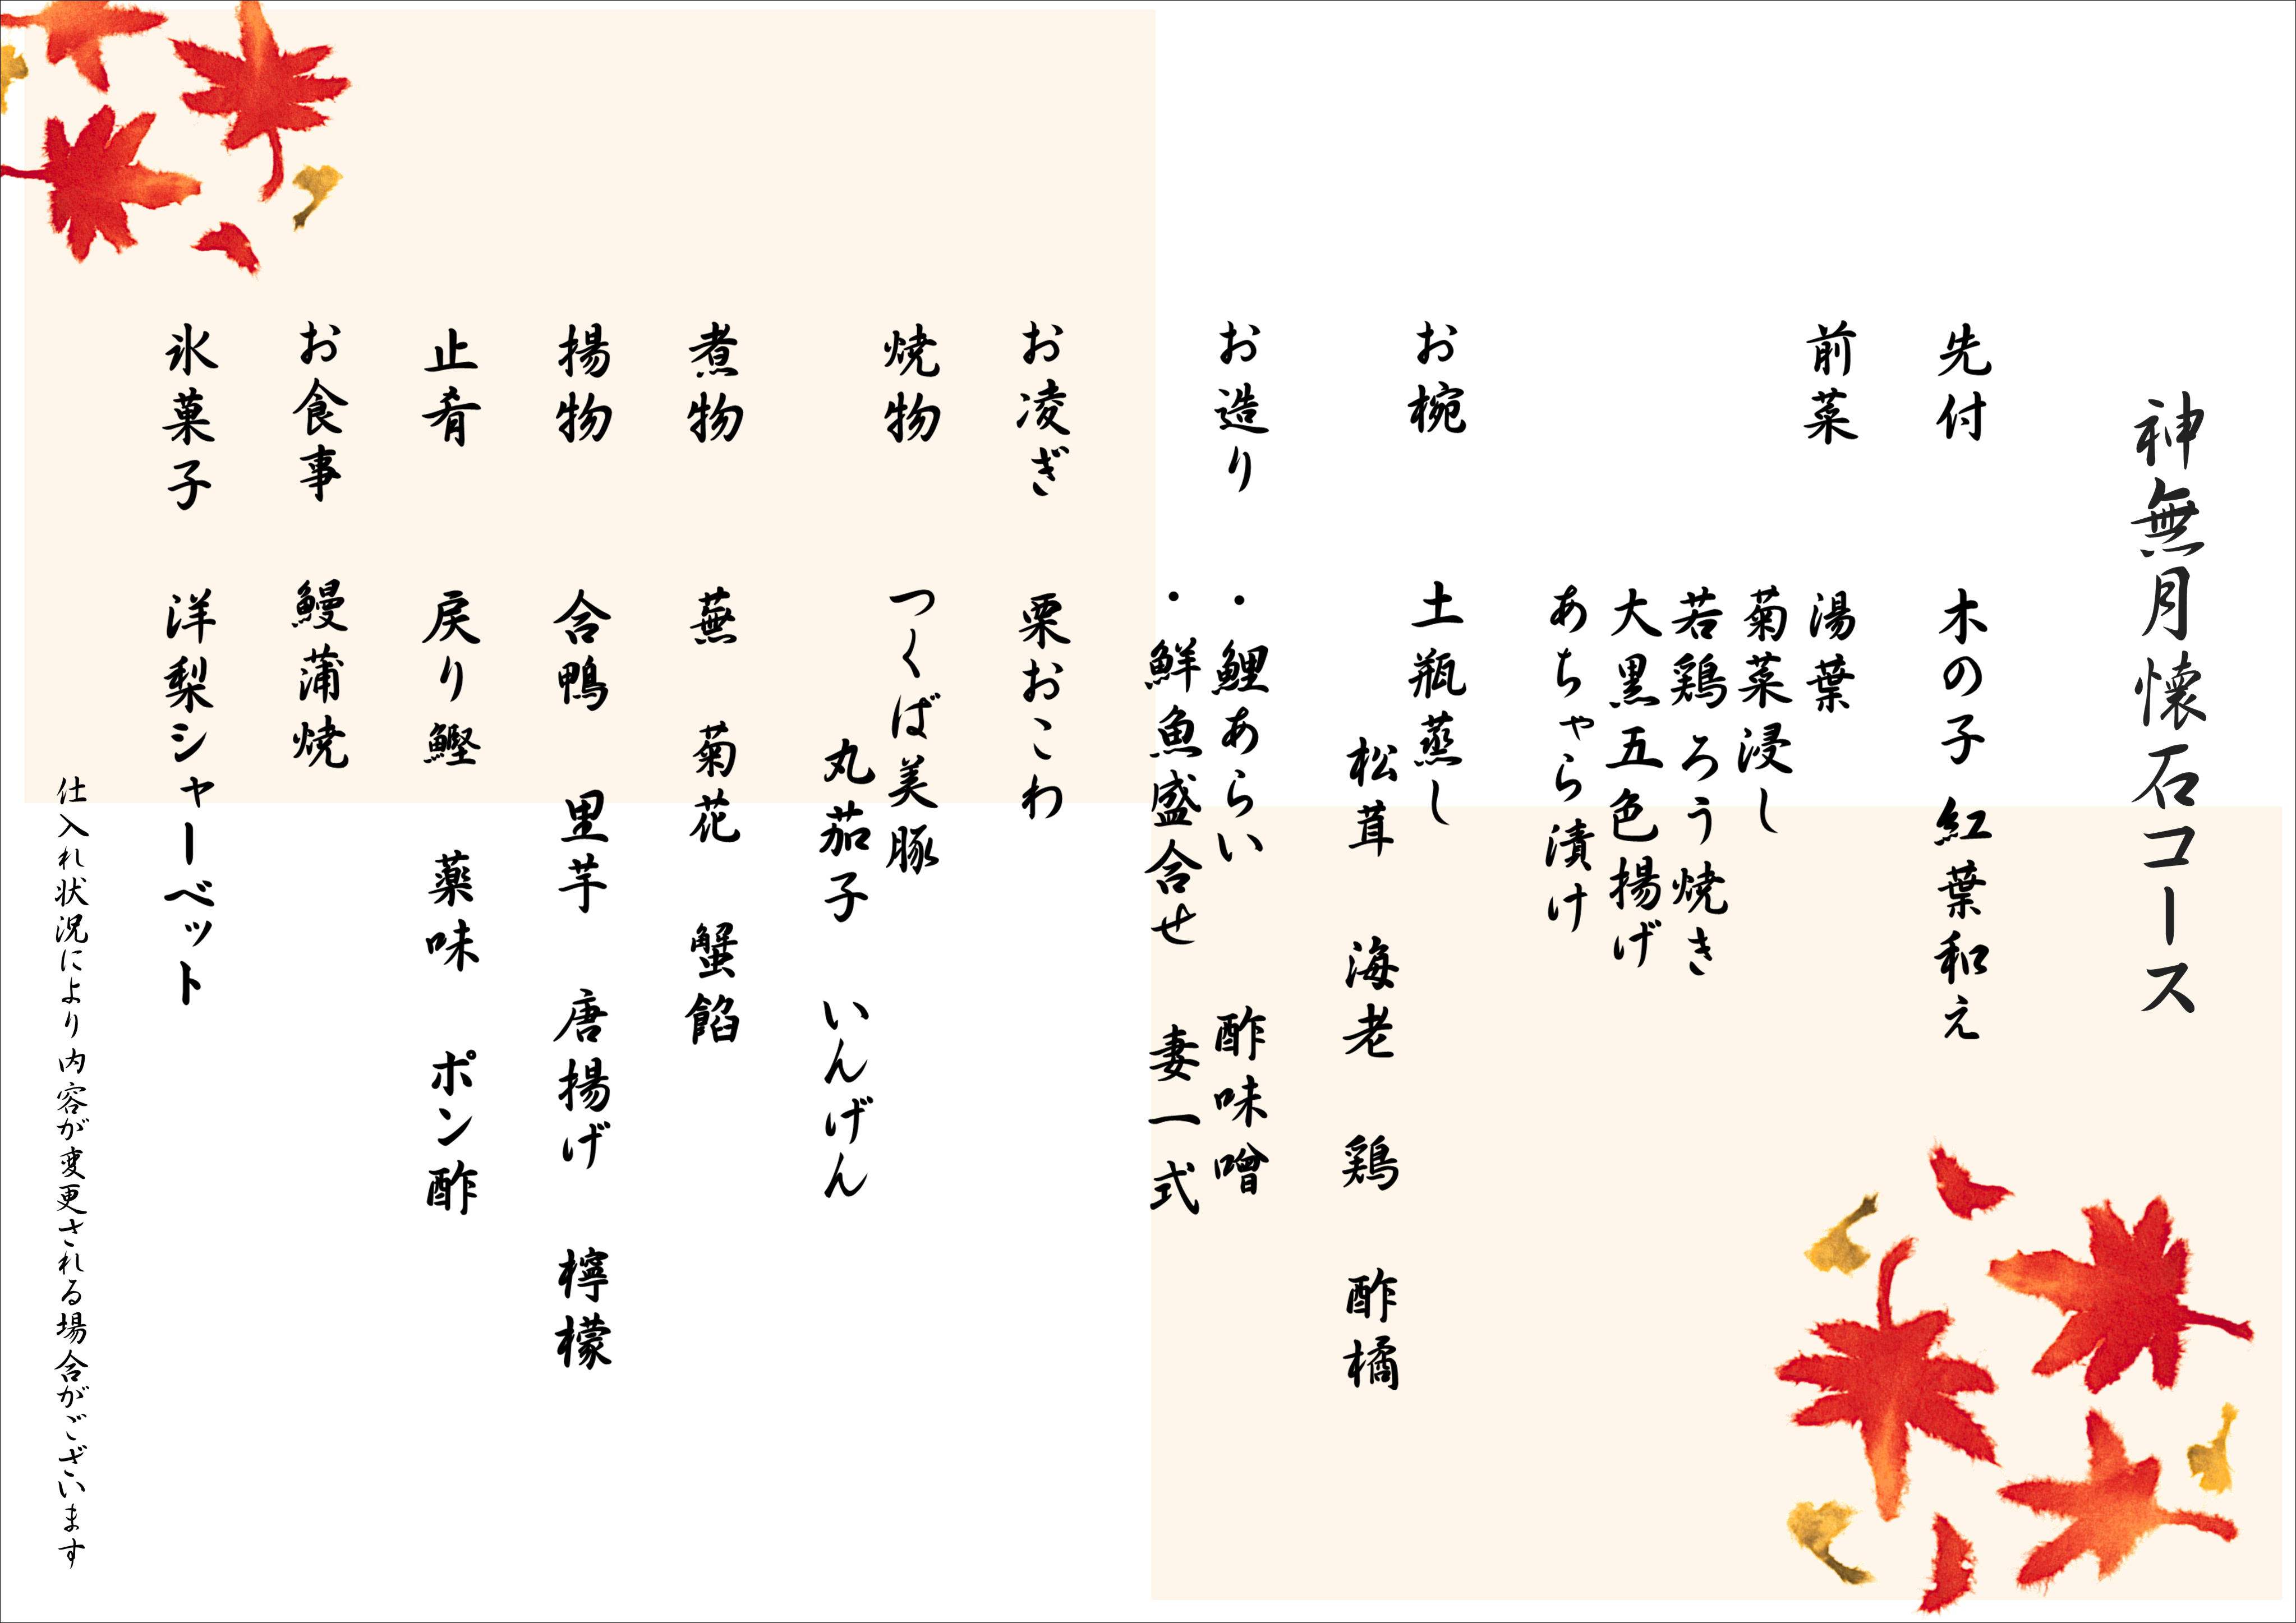 神無月懐石コース
先付　木の子 紅葉和え
前菜　湯葉
菊菜浸し
若鶏ろう焼き
大黒五色揚げ
あちゃら漬け
お椀　土瓶蒸し
松茸　海老　鶏　酢橘
お造り　・鯉あらい　酢味噌
・鮮魚盛合せ　妻一式
お凌ぎ　栗おこわ
焼物　つくば美豚
丸茄子　いんげん
煮物　蕪　菊花　蟹餡
揚物　合鴨　里芋　唐揚げ　檸檬
止肴　戻り鰹　薬味　ポン酢
お食事　鰻蒲焼
氷菓子　洋梨シャーベット
仕入れ状況により内容が変更される場合がございます